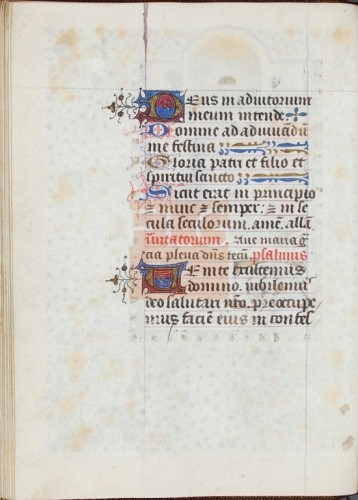 Deus in adiutorium
meum intende
Domine ad adiuuādū
me festina
Gloria patri et filio et
spiritui sancto
Sicut erat in principio
⁊ nunc ⁊ semper: ⁊ in se
cula seculorum. amē. allā.
Inuitatorium. Aue maria grā
cia plena dn̄s tecū. psalmus
Uenite exultemus
domino. iubilemus
deo salutari nr̄o. preoccupe
mus faciē eius in confes